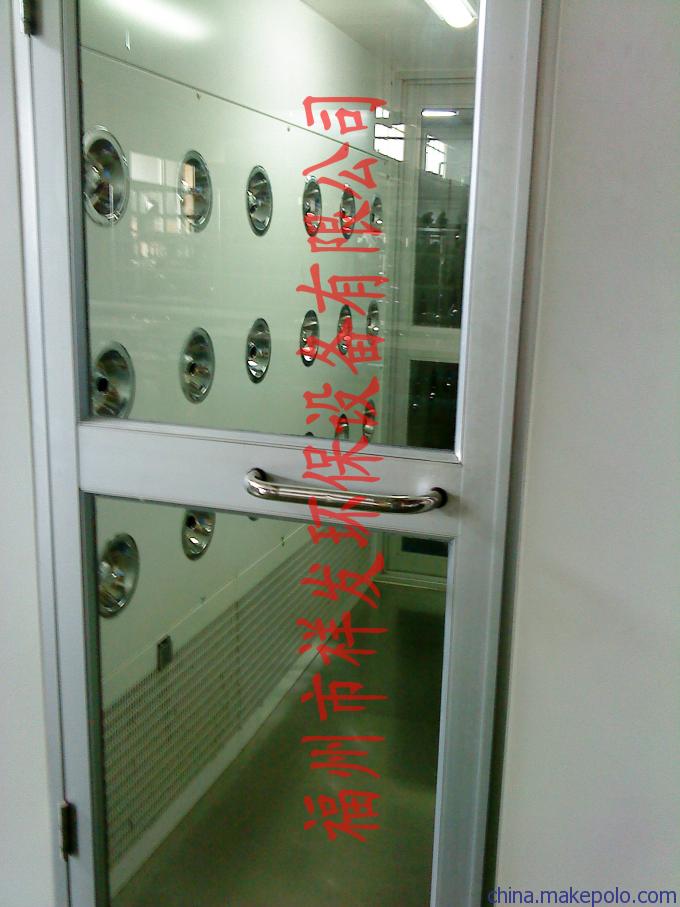 福州市祥发环保设备有限公司
china.makepolo.com